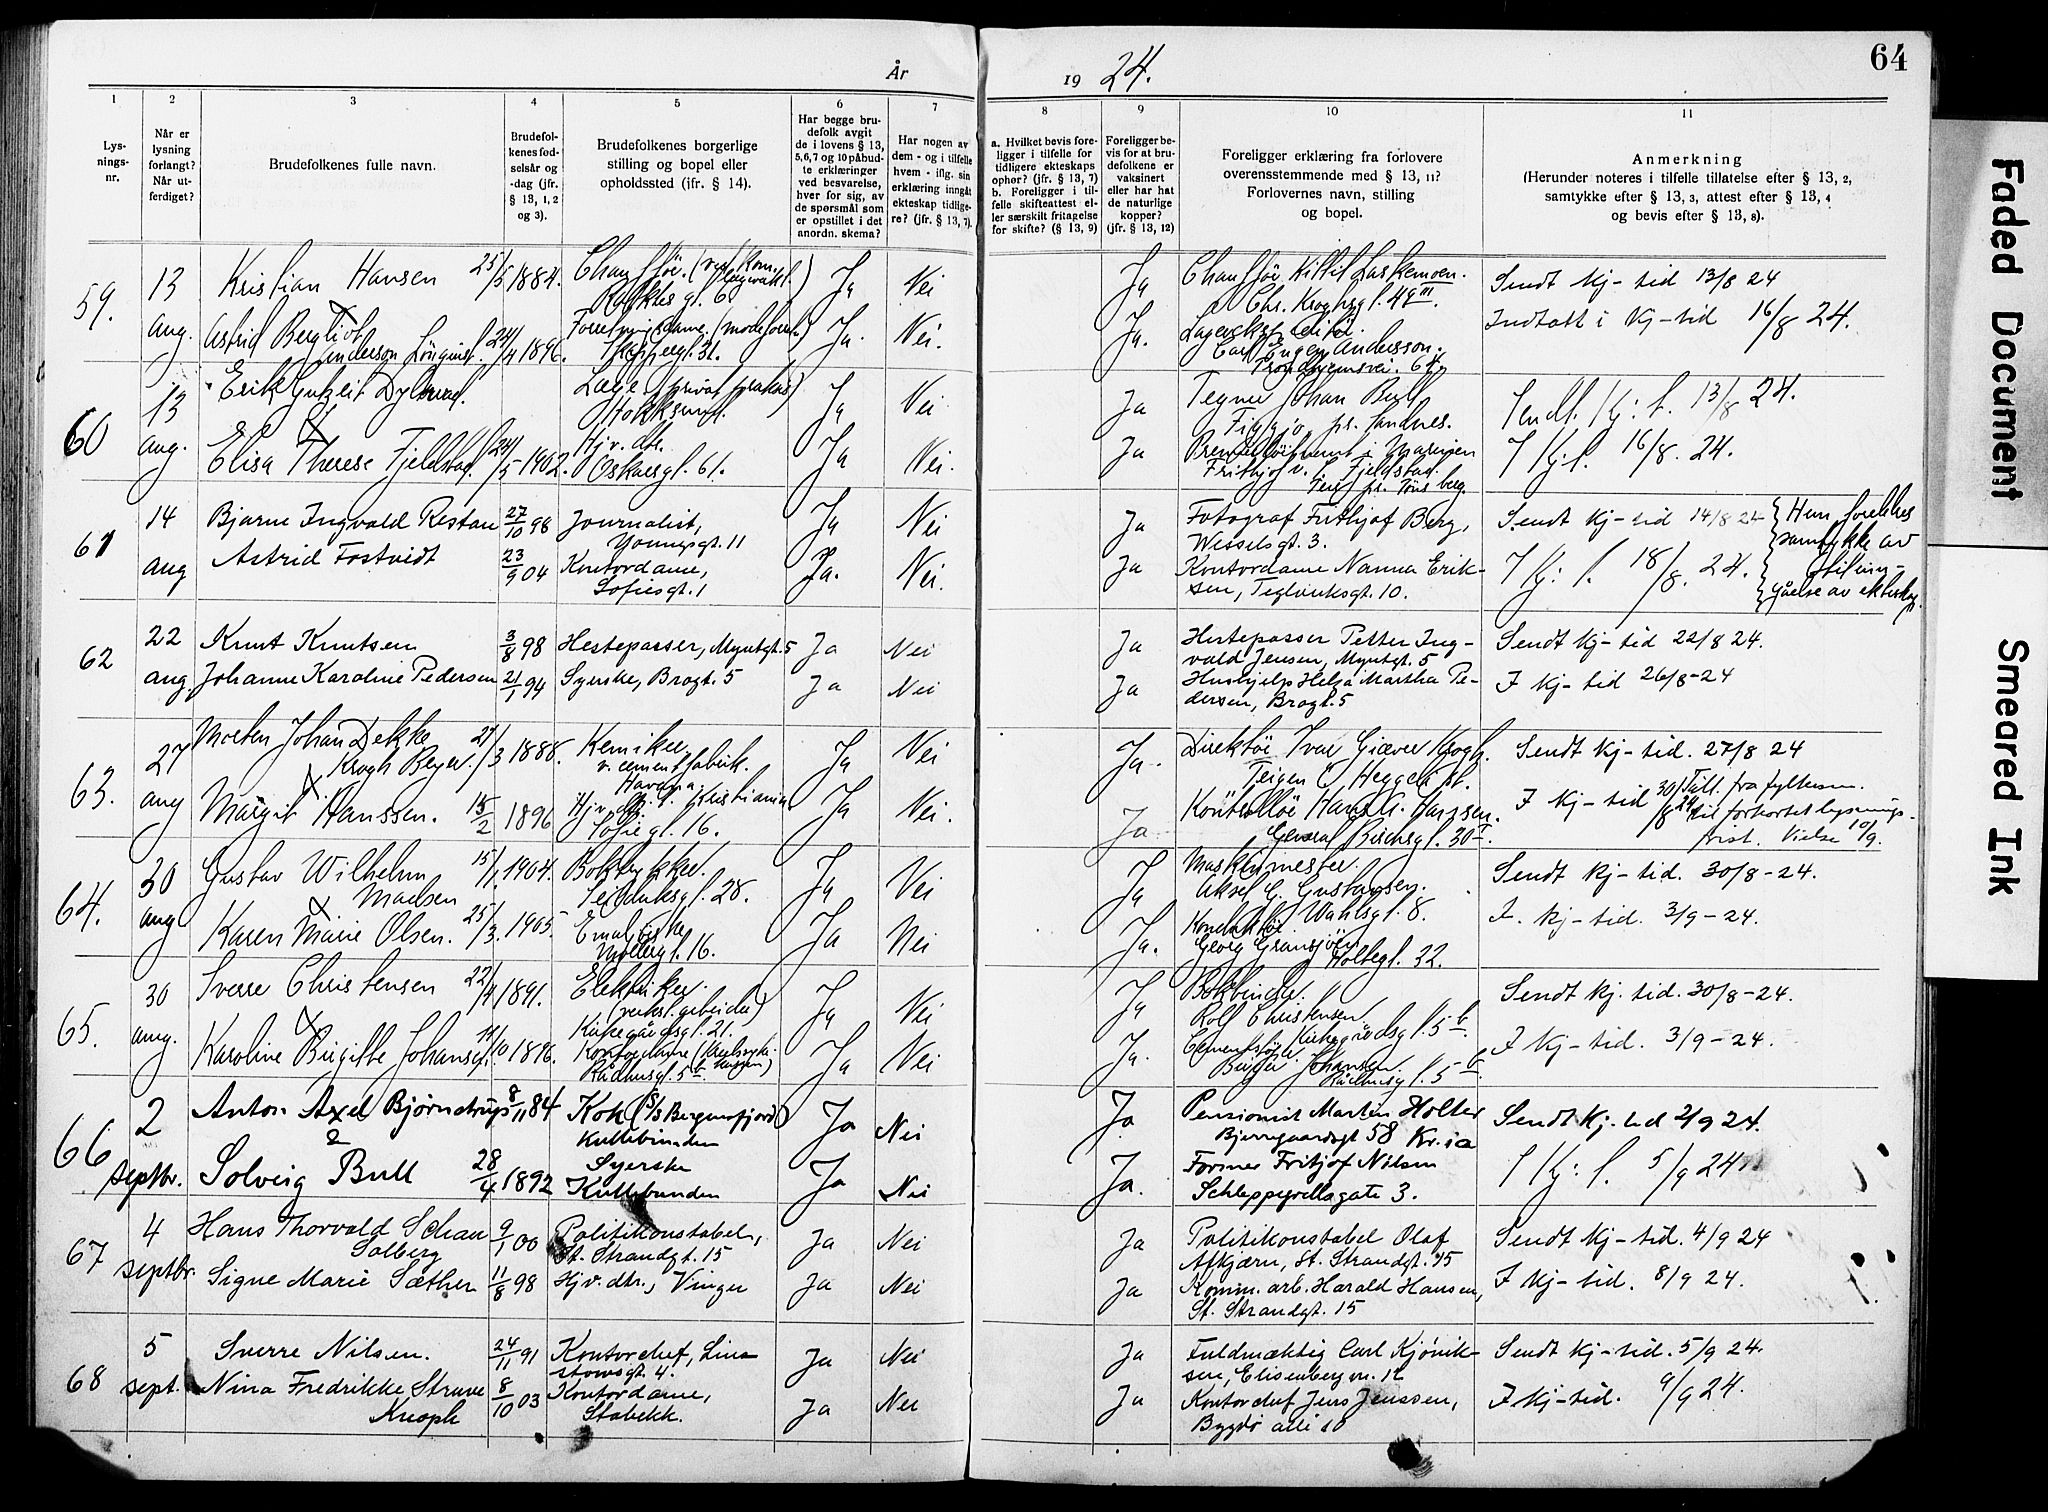 64
År 1924.
1
2
3
4
5
6
7
8
9
10
11
Lys-
nings-
nr.
Når er
lysning
forlangt?
Når ut-
ferdiget?
Brudefolkenes fulle navn.
Brudefol-
kenes fød-
selsår og
-dag (jfr.
§ 13, 1, 2
og 3).
Brudefolkenes borgerlige
stilling og bopel eller
opholdssted (jfr. § 14).
Har begge bru-
defolk avgit
de i lovens § 13,
5,6,7 og 10 påbud-
te erklæringer
ved besvarelse,
hver for sig, av
de spørsmål som
er opstillet i det
anordn. skema?
Har nogen av
dem - og i tilfelle
hvem - iflg. sin
erklæring inngått
ekteskap tidlige-
re? (jfr. § 13, 7).
a. Hvilket bevis fore-
ligger i tilfelle for
tidligere ekteskaps
ophør? (jfr. § 13, 7)
b. Foreligger i til-
felle skifteattest el-
ler særskilt fritagelse
for skifte? (§ 13, 9)
Foreligger be-
vis for at bru-
defolkene er
vaksinert
eller har hat
de naturlige
kopper?
(jfr. § 13, 12)
Foreligger erklæring fra forlovere
overensstemmende med § 13, 11?
Forlovernes navn, stilling
og bopel.
Anmerkning
(Herunder noteres i tilfelle tillatelse efter § 13, 2,
samtykke efter § 13, 3, attest efter § 13, 4
og bevis efter § 13, 8).
59.
13
aug.
Kristian Hansen 25/5 1884.
Astrid Bergliot
Anderson 24/4 1896.
Ja Nei
Ja. Nei.
Ja
Ja.
Carl Eugen Andersson.
Sendt Kj-tid 13/8 24
Indtatt i Kj-tid 16/8 24.
60
13
aug.
Erik Gutzeit
Elisa Therese Fjeldstad. 24/5 1902.
Læge (privat praksis)
Hokksund.
Hjv. dtr.
Oskarsgt. 61.
Ja Nei
Ja Nei.
Ja
Ja
Tegner Johan Bull
Figgjo pr. Sandnes.
Sendt. Kj: t. 13/8 24.
I Kj: t. 16/8. 24.
61
14
aug
Bjarne Ingvald Restan 27/10 98
Astrid Fostvedt 23/9 04
Journalist,
Youngsgt. 11
Kontordame,
Sofiesgt. 1
Ja Nei
Ja. Nei.
Ja
Ja
Fotograf Frithjof Berg,
Wesselsgt. 3.
Kontordame Nanna Erik-
sen, Teglverksgt. 10.
Sendt Kj-tid 14/8 24
I Kj: t. 18/8. 24.
Hun forekkes
samtykke av
til inn-
gåelse av ekteskap.
62
22
aug.
Knut Knutsen 3/8 98
Johanne Karoline Pedersen 21/1 94
Hestepasser, Myntgt. 5
Syerske, Brogt. 5
Ja Nei
Ja Nei
Ja
Ja
Hestepasser Petter Ing-
vald Jensen, Myntgt. 5
Hushjelp Helga Martha Pe-
dersen, Brogt. 5
Sendt Kj-tid 22/8 24.
I Kj-tid 26/8-24
63.
27
aug
Morten Johan Dekke
Krogh Beyer. 21/3 1888.
Margit Hanssen. 15/2 1896
Kemiker
v. cementfabrik.
Havana
Hjv. dtr. Kristiania
Sofiegt. 16.
Ja Nei
Ja Nei.
Ja.
Ja
Direktør Ivar Giæver Krogh.
Teigen Heggeli st.
Sendt Kj-tid. 27/8 24
I Kj-tid 30/8 24
Till. fra fylkesm.
til forkortet lysnings-
frist. Vielse 10/9.
64.
30
aug
Gustav Wilhelm
Madsen 15/1. 1904.
Karen Marie Olsen. 25/3. 1905.
Boktrykker.
Seilduksgt. 28.
Møllergt. 16.
Ja Nei
Ja Nei
Ja
Ja.
Maskinmester.
Aksel G. Gustavsen.
Wahlsgt. 8.
Konduktør
Georg Gransjøen
Holtegt. 32.
Sendt Kj-tid. 30/8-24.
I. Kj-tid. 3/9-24.
65.
30
aug.
Sverre Christensen 22/4 1891.
Karoline Birgitte Johansen 11/10 1896.
Elektriker.
Kirkegårdsgt. 21.
Kontordame
Rådhusgt. 5b.
Ja Nei
Ja Nei
Ja
Ja.
Bokbinder.
Rolf Christensen
Birger Johansen.
Rådhusgt. 5b.
Sendt Kj. tid. 30/8-24.
I Kj-tid. 3/9-24.
66
2
septbr.
Anton Axel Bjørnstrup 8/11 84
&
Solveig Bull 28/4 1892
Kok (S/S Bergensfjord)
Kullebunden
Syerske
Kullebunden
Ja Nei
Ja Nei
Ja
Ja.
Pensionist Martin Holter
Bjerregaardsgt 58 Kr.ia
Former Fritjof Nilsen
Schleppegrellsgate 3.
Sendt Kj. tid 2/9 24.
I Kj: t. 5/9 24
67
4
septbr.
Hans Thorvald Schau
Solberg 9/1 00
Signe Marie Sæther 11/8 98
Politikonstabel,
St. Strandgt. 15
Hjv. dtr., Vinger
Ja Nei
Ja Nei
Ja
Ja
Politikonstabel Olaf
Afkjærn, St. Strandgt. 15
Komm. arb. Harald Hansen,
St. Strandgt. 15
Sendt Kj-tid. 4/9 24
I Kj-tid. 8/9 24.
68
5
sept.
Sverre Nilsen. 24/11 91
Nina Fredrikke Struve
Knoph 8/10 03
Kontorchef, Lin-
stowsgt. 4.
Kontordame,
Stabekk.
Ja Nei
Ja Nei
Ja
Ja
Fuldmæktig Carl Kjønik-
sen, Elisenbergvn. 12
Kontorchef Jens Jenssen,
Bygdø alle 10
Sendt Kj-tid. 5/9 24.
I Kj-tid. 9/9 24.
Faded Document
Smeared Ink